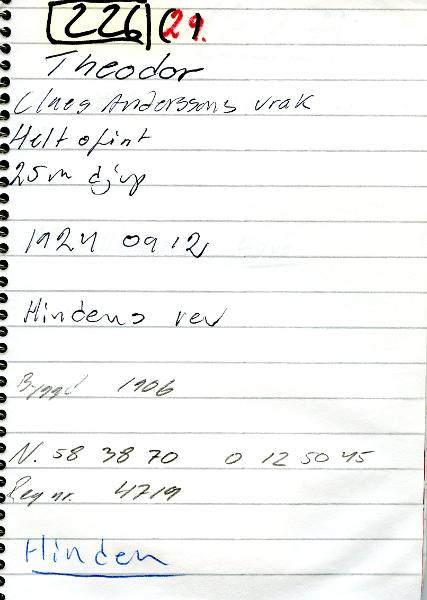 226 (29.
Theodor
Claes Anderssons vrak
Helt ofint
25m djup
1924 09 12
Hindens rev
Byggd 1906
N. 58 38 70 O 12 50 45
Reg nr. 4719
Hinden